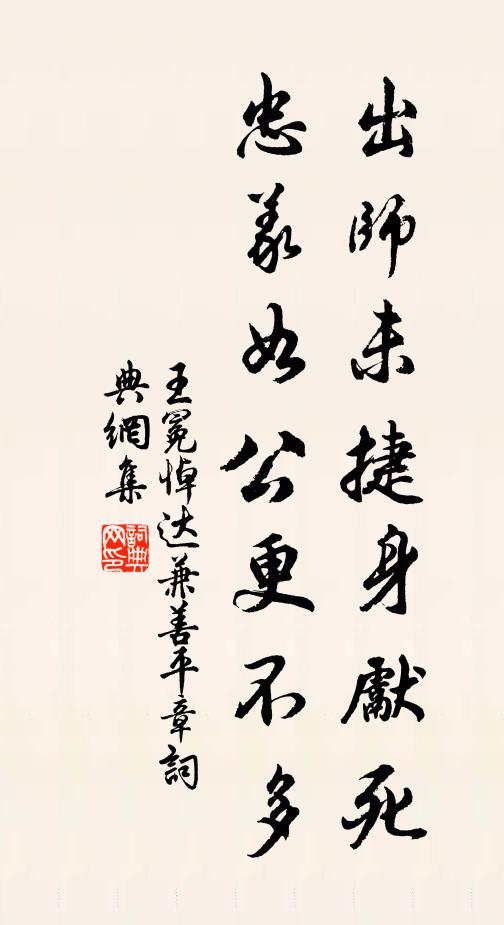 出師未捷身獻死
忠義如公更不多
王冕悼达兼善平章詞
典網集
詞典
网印